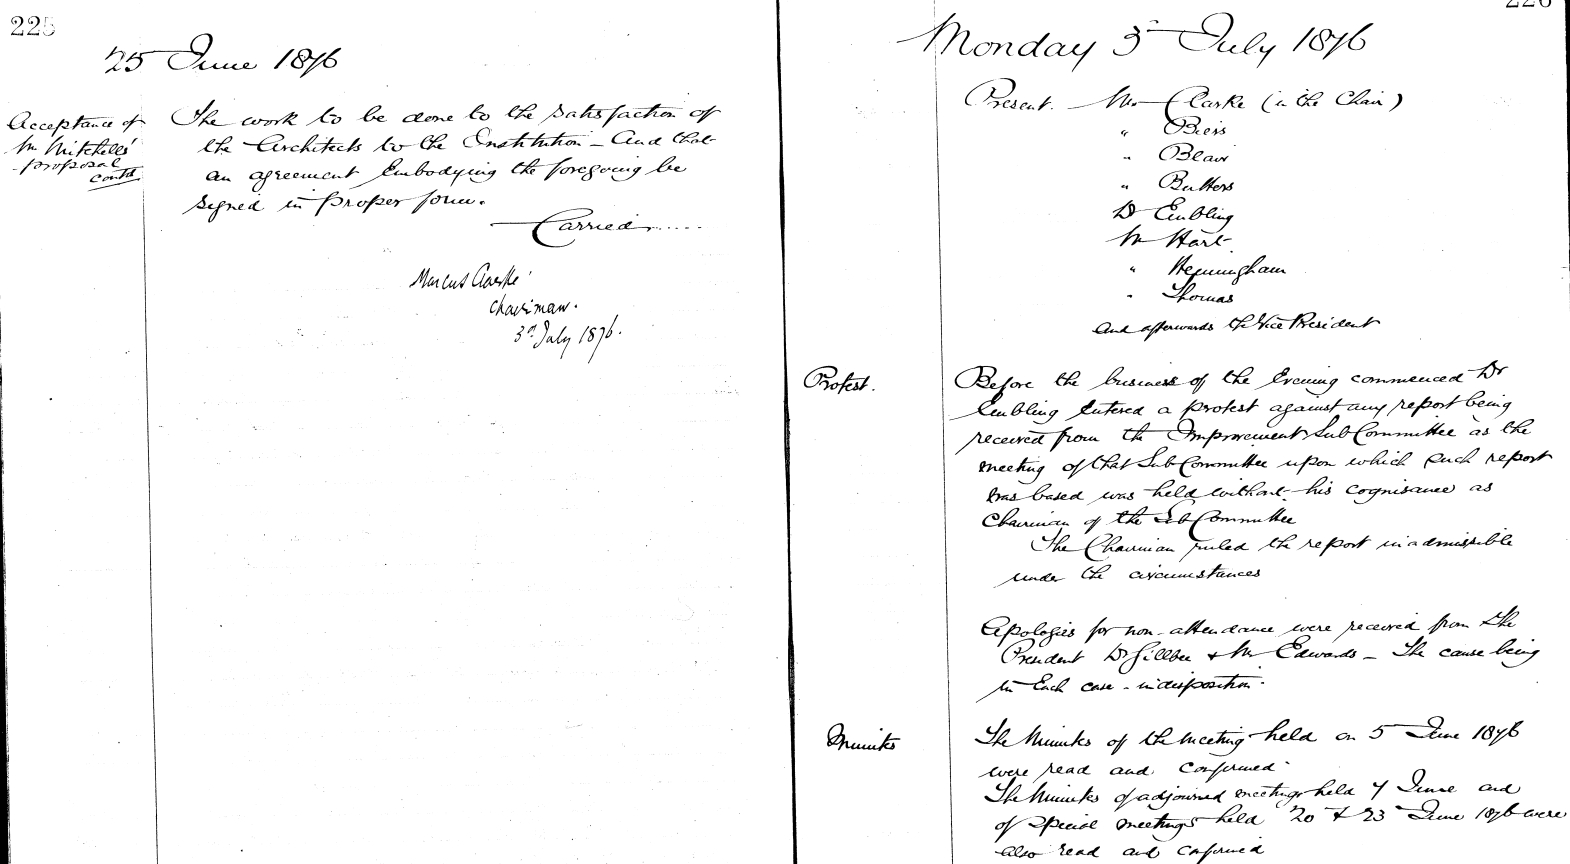 225
25 June 1876
Acceptance of
Mr Mitchells'
proposal
contd
The work to be done to the satisfaction of
the Architects to the Institution – And that
an agreement Embodying the foregoing be
signed in proper form.
Carried.....
Marcus Clarke
Chairman.
3rd July 1876.
226
Monday 3rd July 1876
Present. Mr Clarke (in the Chair)
" Biers
" Blair
" Butters
Dr Embling
Mr Hart.
" Heyningham
" Thomas
And afterwards the Vice President
Protest.
Before the business of the Evening commenced Dr
Embling Entered a protest against any report being
received from the Improvement Sub Committee as the
meeting of that Sub Committee upon which such report
was based was held without his cognisance as
Chairman of the Sub Committee
The Chairman ruled the report inadmissible
under the circumstances
Apologies for non-attendance were received from the
President Dr Gillbee & Mr Edwards – The cause being
in Each case - indisposition.
Minutes
The Minutes of the meeting held on 5 June 1876
were read and confirmed
The Minutes of adjourned meetings held 7 June and
of Special meetings held 20 & 23 June 1876 were
also read and confirmed